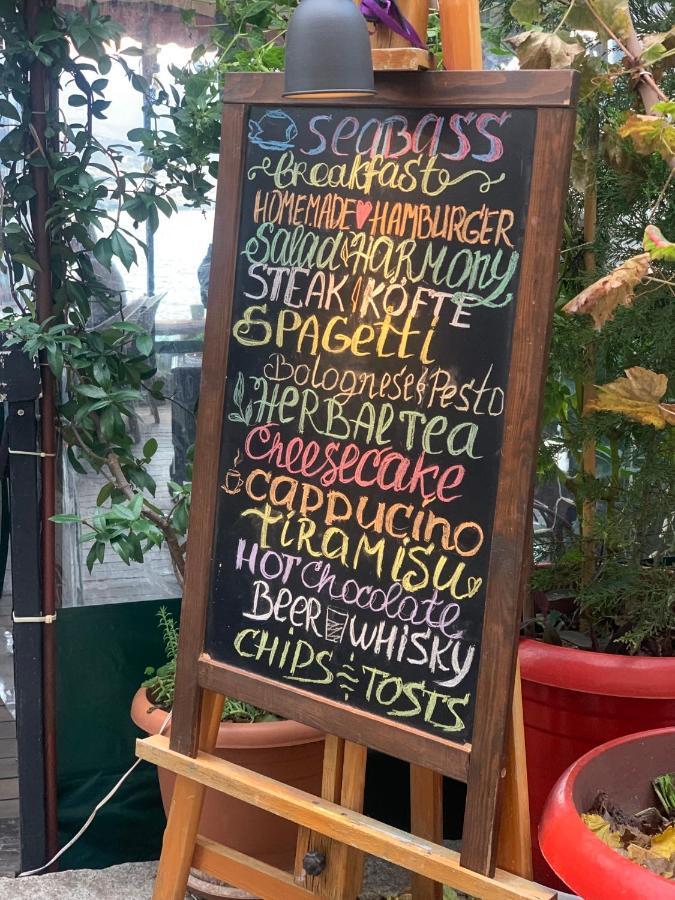 SEABASS
breakfast
HOMEMADE HAMBURGER
Salad & HARMONY
STEAK KÖFTE
SPAGETTI
Bolognese & Pesto
HERBAL TEA
Cheesecake
cappucino
TİRAMİSU
HOT chocolate
BEER WHİSKY
CHİPS TOSTS